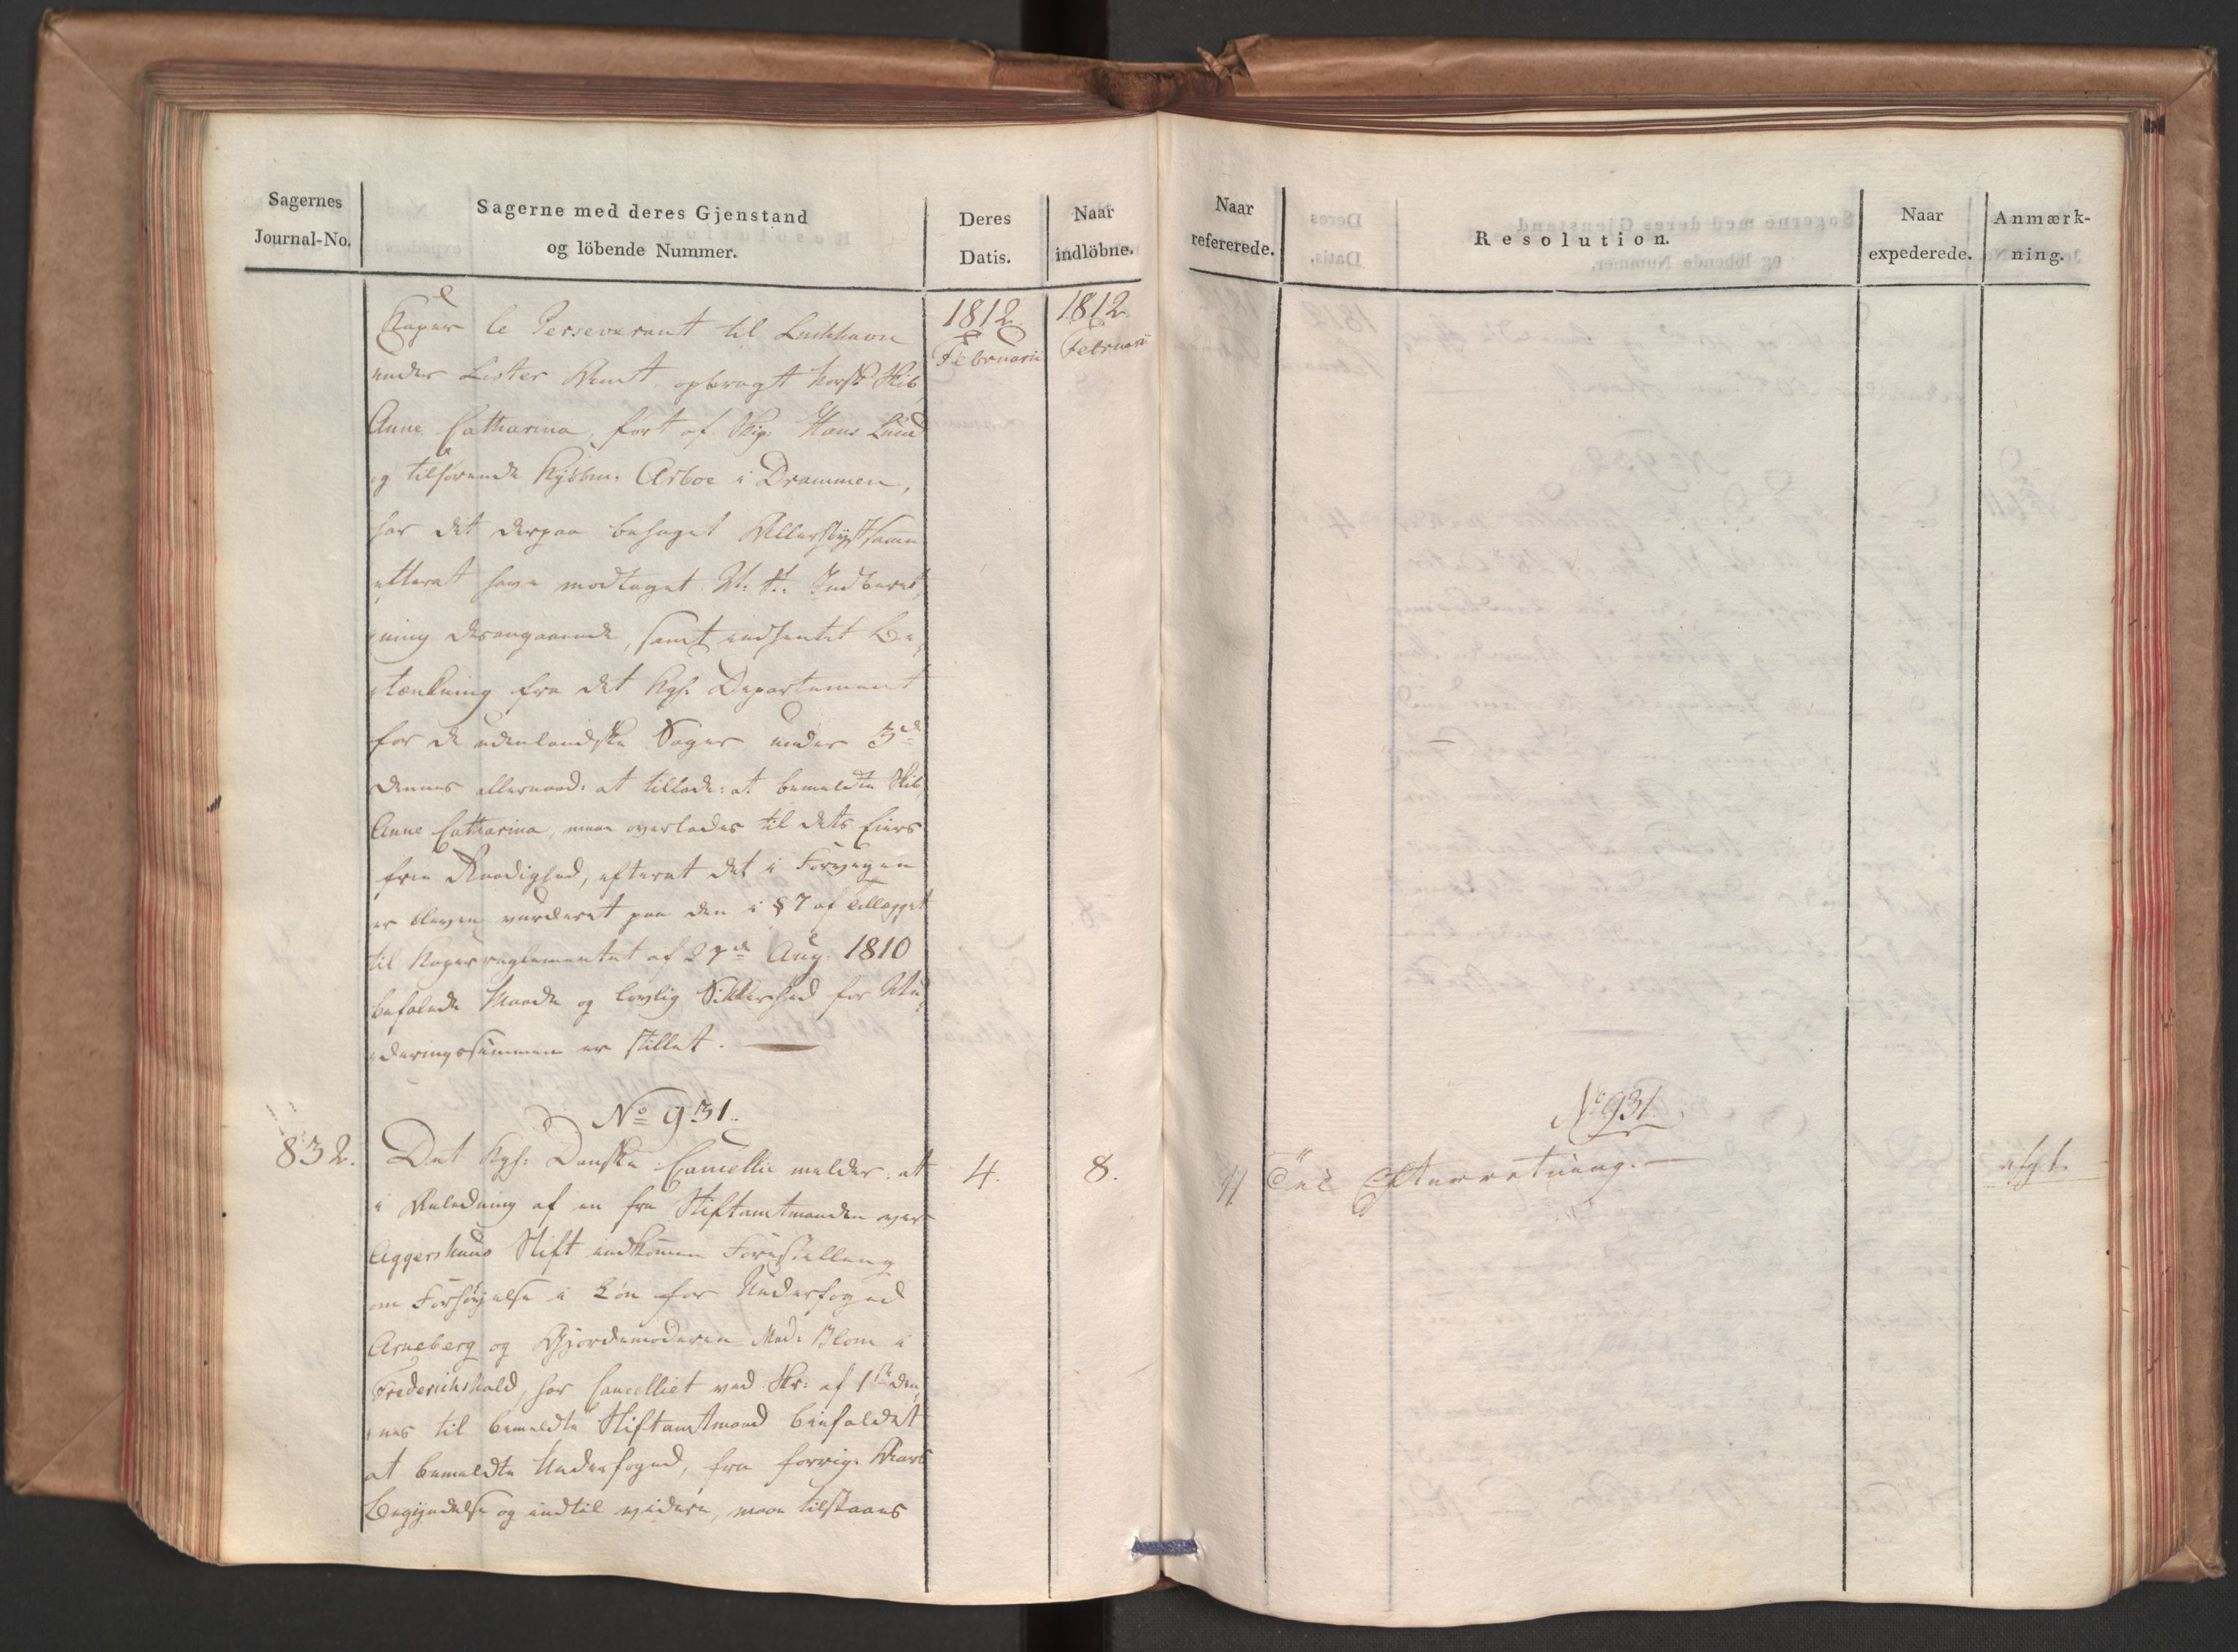 Sagernes
Journal-No.
Sagerne med deres Gjenstand
og löbende Nummer.
Deres
Datis.
Naar
indlöbne.
1812
Februarii
1812.
Februarii
Caper le Perseverant til Lückhavn
under Lister Amt opbragt norsk Skib
Anne Catharina, ført af Skip: Hans Lund
og tilhørende Kjøbm: Arboe i Drammen,
har det derpaa behaget Allerhøystsamme
efterat have modtaget Indberet
ning desangaaende, samt indhentet Be
tænkning fra det Kgl: Departement
for de udenlandske Sager under 3de
dennes allernaad: at tillade: at bemeldte Skib
Anne Catharina, maae overlades til dets Eiers
frie Raadighed, efterat det i Forveyen
er bleven vurderet paa den i § 7 af Tillægget
til Kaperreglementet af 27de Aug: 1810
befalede Maade og lovlig Sikkerhed for Vur
deringssummen er stillet. —
No 931.
832.
Det Kgl: Danske Cancellie melder: at
i Anledning af en fra Stiftamtmanden over
Aggershuus Stift indkommen Forestilling
om Forhøyelse i Løn for Underfoged
Arneberg og Gjordemoderen Mad: Blom i
Friderichshald, har Cancelliet ved Skr: af 1ste den
nes til bemeldte Stiftamtmand bifaldet
at bemeldte Underfoged, fra forrige Aars
Begyndelse og indtil videre, maae tilstaaes
4.
8.
Naar
refererede.
Resolution.
Naar
expederede.
Anmærk-
ning.
No 931.
11
Til Efterretning. —
afg. l.